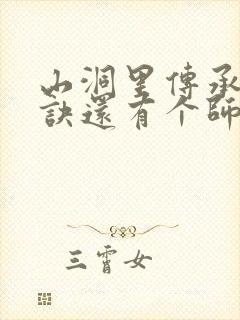 山洞里傳承
訣還有个師
三霄女